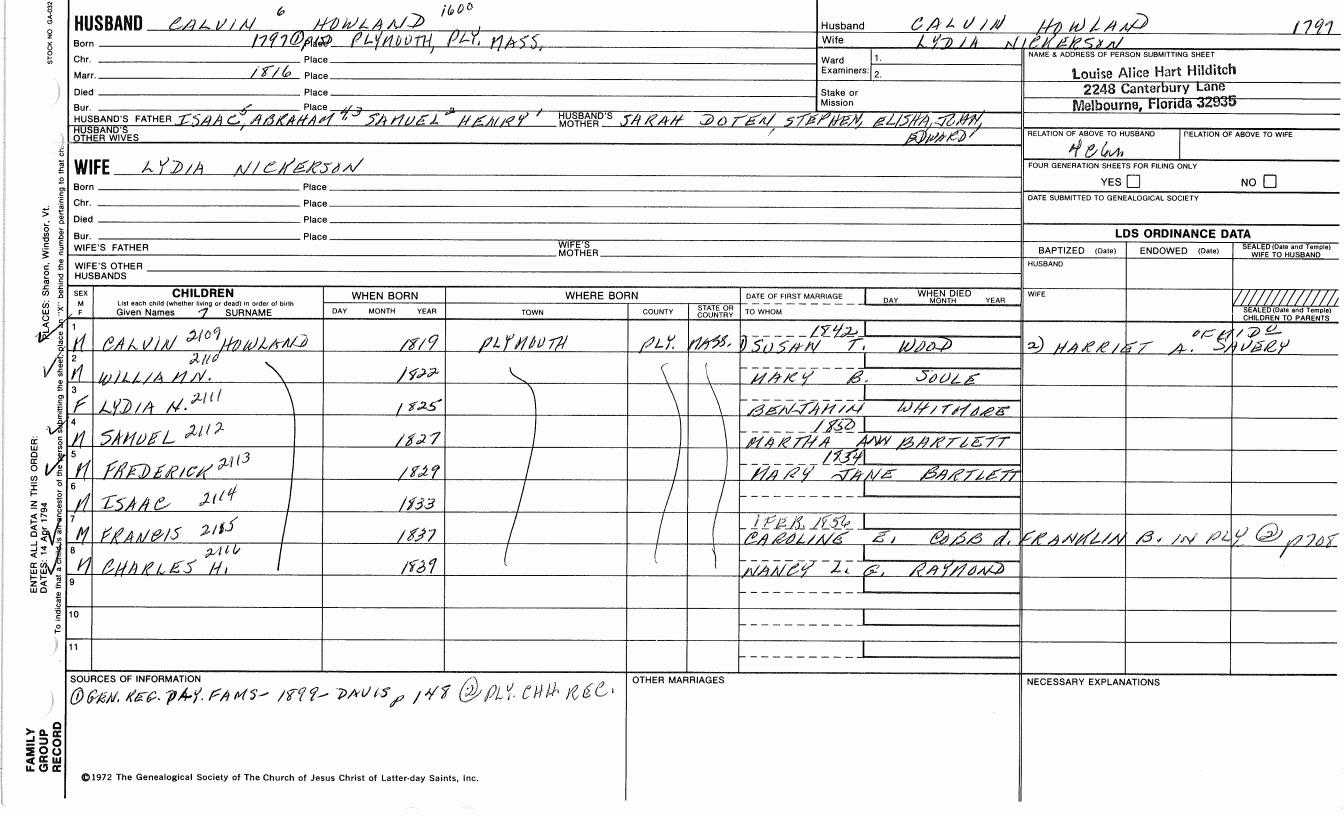 STOCK NO. GA-032
HUSBAND CALVIN 6 HOWLAND 1600
Born 1797 ① Place PLYMOUTH, PLY. MASS.
Chr. Place
Marr. 1816 Place
Died Place
Bur. Place
HUSBAND'S FATHER ISAAC 5, ABRAHAM 4,3 SAMUEL 2 HENRY 1 HUSBAND'S MOTHER SARAH DOTEN, STEPHEN, ELISHA, JOHN, EDWARD
HUSBAND'S OTHER WIVES
Husband CALVIN HOWLAND 1797
Wife LYDIA NICKERSON
Ward Examiners: 1.
2.
Stake or Mission
NAME & ADDRESS OF PERSON SUBMITTING SHEET
Louise Alice Hart Hilditch
2248 Canterbury Lane
Melbourne, Florida 32935
RELATION OF ABOVE TO HUSBAND RELATION OF ABOVE TO WIFE
FOUR GENERATION SHEETS FOR FILING ONLY
YES NO
DATE SUBMITTED TO GENEALOGICAL SOCIETY
WIFE LYDIA NICKERSON
Born Place
Chr. Place
Died Place
Bur. Place
WIFE'S FATHER WIFE'S MOTHER
WIFE'S OTHER HUSBANDS
LDS ORDINANCE DATA
BAPTIZED (Date) ENDOWED (Date) SEALED (Date and Temple) WIFE TO HUSBAND
HUSBAND
WIFE
SEALED (Date and Temple) CHILDREN TO PARENTS
SEX M F
CHILDREN
List each child (whether living or dead) in order of birth
Given Names 7 SURNAME
WHEN BORN DAY MONTH YEAR
WHERE BORN TOWN COUNTY STATE OR COUNTRY
DATE OF FIRST MARRIAGE TO WHOM
WHEN DIED DAY MONTH YEAR
1 M CALVIN 2109 HOWLAND 1819 PLYMOUTH PLY. MASS. 1842 1) SUSAN T. WOOD OF MIDD 2) HARRIET A. SAVERY
2 M WILLIAM N. 2110 1822 MARY B. SOULE
3 F LYDIA N. 2111 1825 BENJAMIN WHITMORE
4 M SAMUEL 2112 1827 1850 MARTHA ANN BARTLETT
5 M FREDERICK 2113 1829 1854 MARY JANE BARTLETT
6 M ISAAC 2114 1833
7 M FRANCIS 2115 1837 1 FEB. 1856 CAROLINE E. COBB d. FRANKLIN B. IN PLY ② p708
8 M CHARLES H. 2116 1839 NANCY L. G. RAYMOND
9
10
11
SOURCES OF INFORMATION
① GEN. REG. PLY. FAMS - 1899 - DAVIS p 148 ② PLY. CHH. REC.
OTHER MARRIAGES
NECESSARY EXPLANATIONS
©1972 The Genealogical Society of The Church of Jesus Christ of Latter-day Saints, Inc.
FAMILY GROUP RECORD
ENTER ALL DATA IN THIS ORDER:
DATES: 14 Apr 1794
PLACES: Sharon, Windsor, Vt.
To indicate that a child is an ancestor of the person submitting the sheet, place an "X" behind the number pertaining to that ch